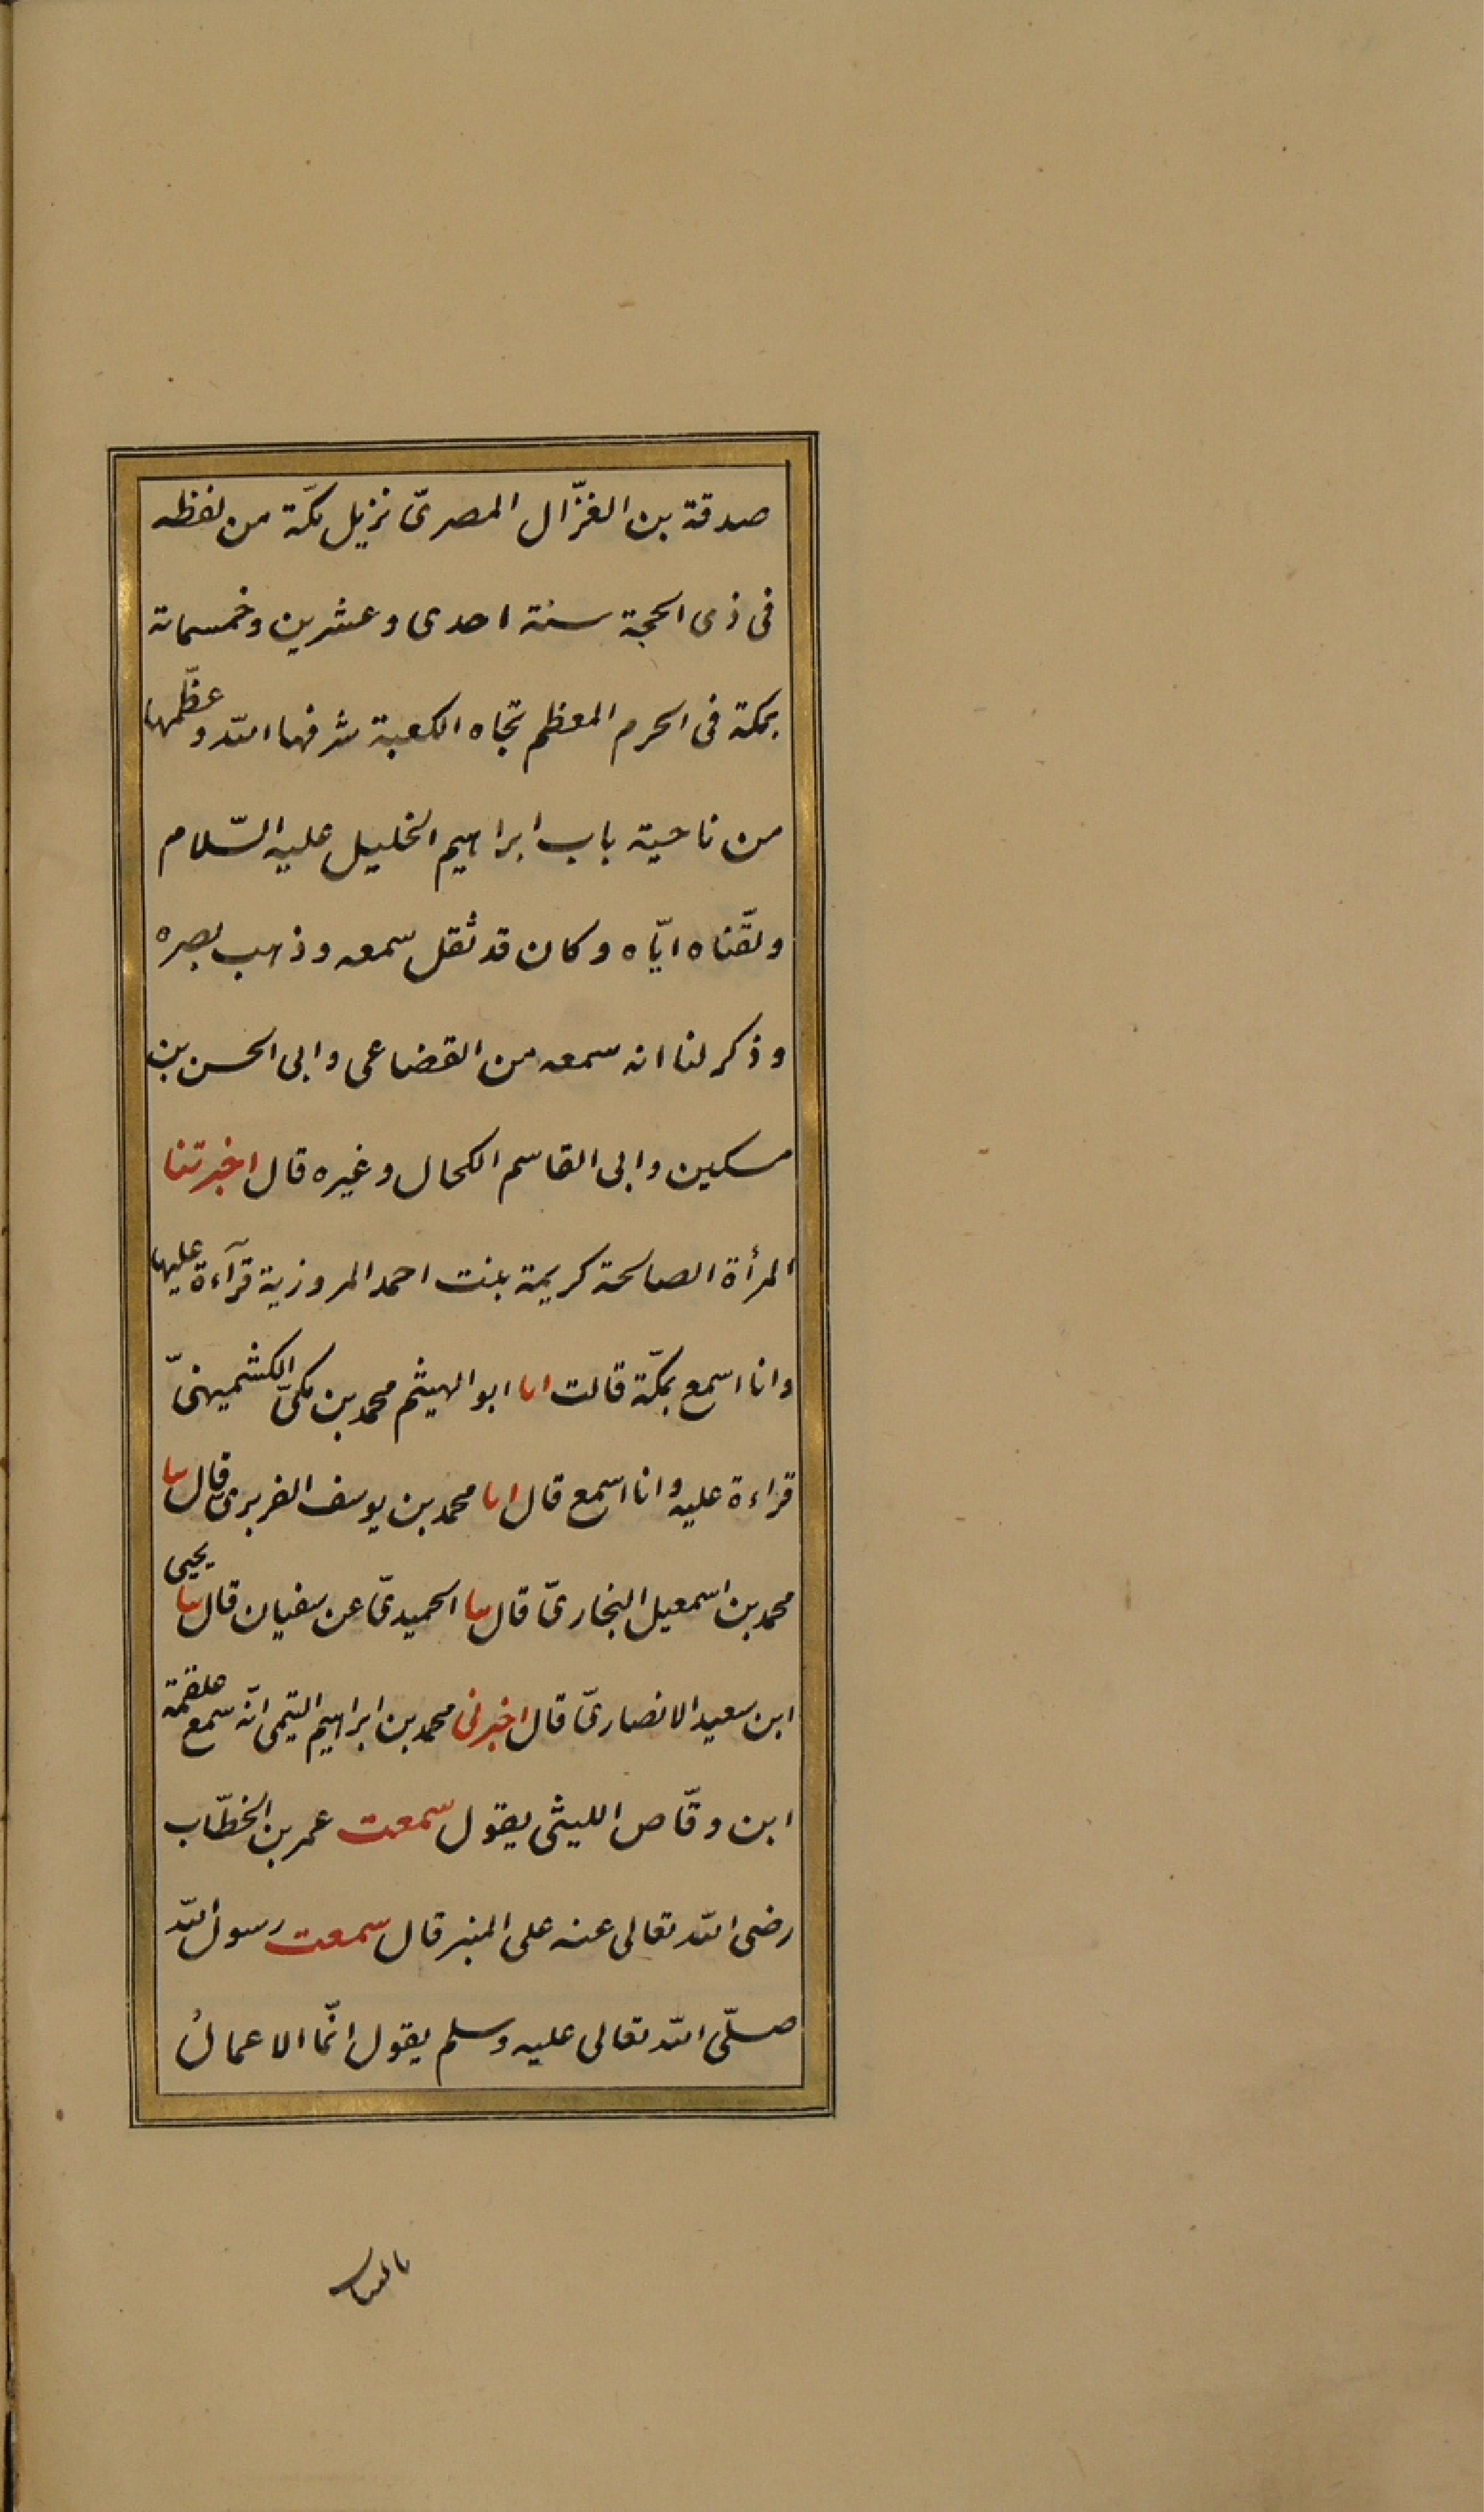 صدقة بن الغزّال المصرىّ نزيل مكّة من لفظه
فى ذى الحجة سنة احدى وعشرين وخمسمائة
بمكة فى الحرم المعظم تجاه الكعبة شرفها اللّه وعظّمها
من ناحية باب ابراهيم الخليل عليه السّلام
ولقّناه ايّاه وكان قد ثقل سمعه وذهب بصره
وذكر لنا انه سمعه من القضاعى وابى الحسن بن
مسكين وابى القاسم الكحال وغيره قال اخبرتنا
المرأة الصالحة كريمة بنت احمد المروزية قرآءة عليها
وانا اسمع بمكّة قالت انا ابو الهيثم محمد بن مكىّ الكشميهنىّ
قراءة عليه وانا اسمع قال انا محمد بن يوسف الفربرى قال ثنا
محمد بن اسمعيل البخارىّ قال ثنا الحميدىّ عن سفيان قال ثنا يحيى
ابن سعيد الانصارىّ قال اخبرنى محمد بن ابراهيم التيمى انّه سمع علقمة
ابن وقّاص الليثى يقول سمعت عمر بن الخطّاب
رضى اللّه تعالى عنه على المنبر قال سمعت رسول اللّه
صلّى اللّه تعالى عليه وسلم يقول انّما الاعمالُ
بالنيات